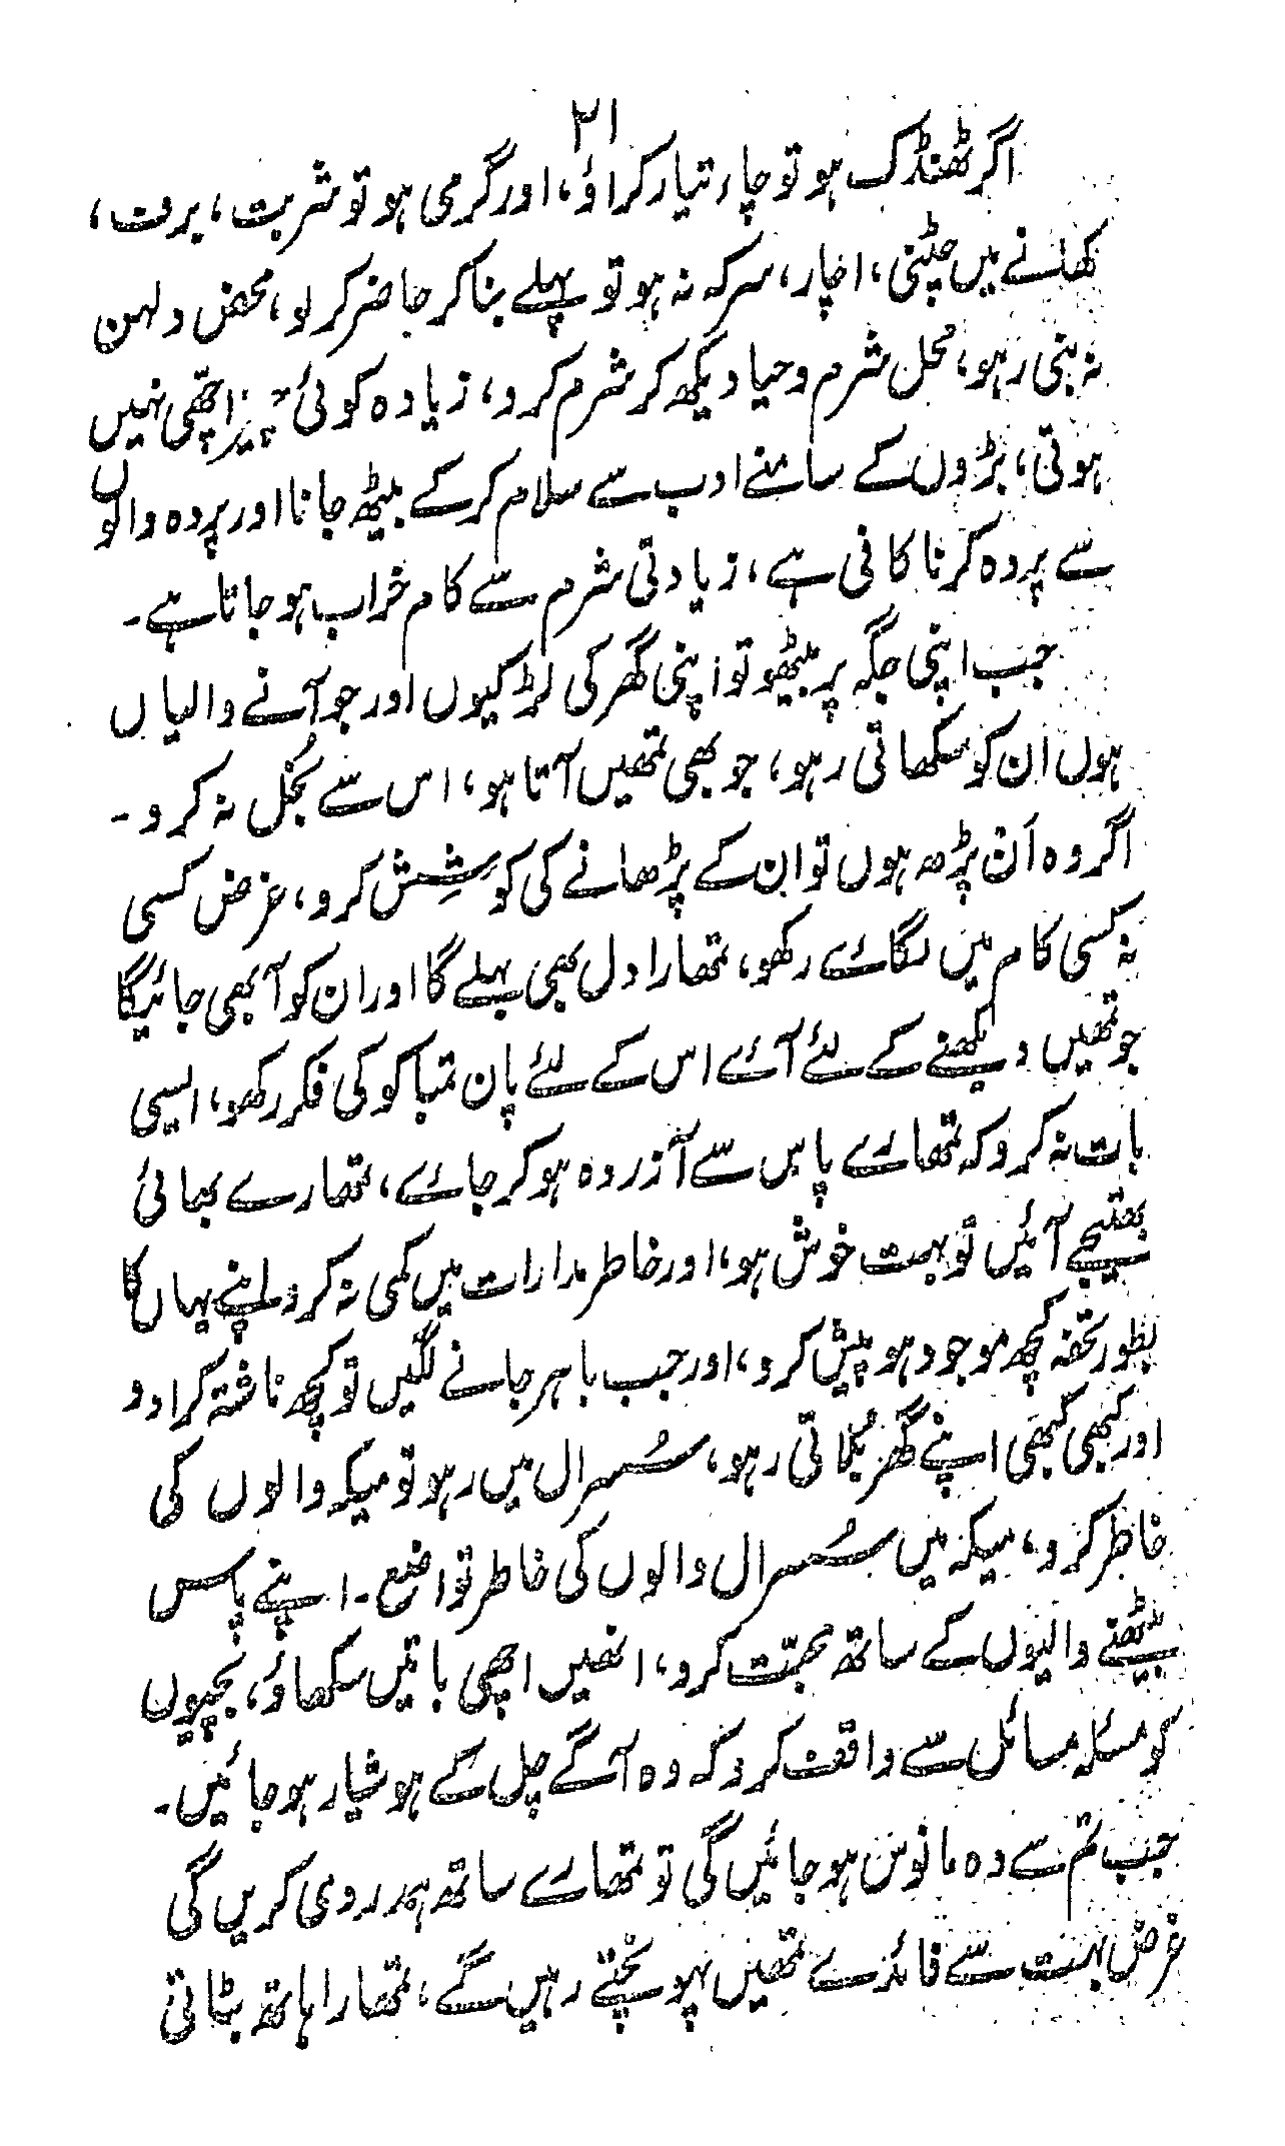 ۲۱
اگر ٹھنڈک ہو تو چاء تیار کراؤ، اور گرمی ہو تو شربت، برف،
کھانے میں چٹنی، اچار، سرکہ نہ ہو تو پہلے بنا کر حاضر کر لو، محض دلہن
نہ بنی رہو، محل شرم وحیا دیکھ کر شرم کرو، زیادہ کوئی چیز اچھی نہیں
ہوتی، بڑوں کے سامنے ادب سے سلام کر کے بیٹھ جانا اور پردہ والوں
سے پردہ کرنا کافی ہے، زیادتی شرم سے کام خراب ہو جاتا ہے۔
جب اپنی جگہ پر بیٹھو تو اپنی گھر کی لڑکیوں اور جو آنے والیاں
ہوں اُن کو سکھاتی رہو، جو بھی تمھیں آتا ہو، اس سے بُخل نہ کرو۔
اگر وہ اَن پڑھ ہوں تو ان کے پڑھانے کی کوشِش کرو، غرض کسی
نہ کسی کام میں لگائے رکھو، تمھارا دل بھی بہلے گا اور ان کو آ بھی جائیگا
جو تمھیں دیکھنے کے لئے آئے اس کے لئے پان تمباکو کی فکر رکھو، ایسی
بات نہ کرو کہ تمھارے پاس سے آزردہ ہو کر جائے، تمھارے بھائی
بھتیجے آئیں تو بہت خوش ہو، اور خاطر مدارات میں کمی نہ کرو اپنے یہاں کا
بطور تحفہ کچھ موجود ہو پیش کرو، اور جب باہر جانے لگیں تو کچھ ناشتہ کرا دو
اور کبھی کبھی اپنے گھر بُلاتی رہو، سُسرال میں رہو تو میکہ والوں کی
خاطر کرو، میکہ میں سُسرال والوں کی خاطر تواضع۔ اپنے پاس
بیٹھنے والیوں کے ساتھ محبّت کرو، انھیں اچھی باتیں سکھاؤ، بچیوں
کو مسئلہ مسائل سے واقف کرو کہ وہ آگے چل کے ہوشیار ہو جائیں۔
جب تم سے وہ مانوس ہو جائیں گی تو تمھارے ساتھ ہمدردی کریں گی
غرض بہت سے فائدے تمھیں پہونچتے رہیں گے، تمھارا ہاتھ بٹاتی